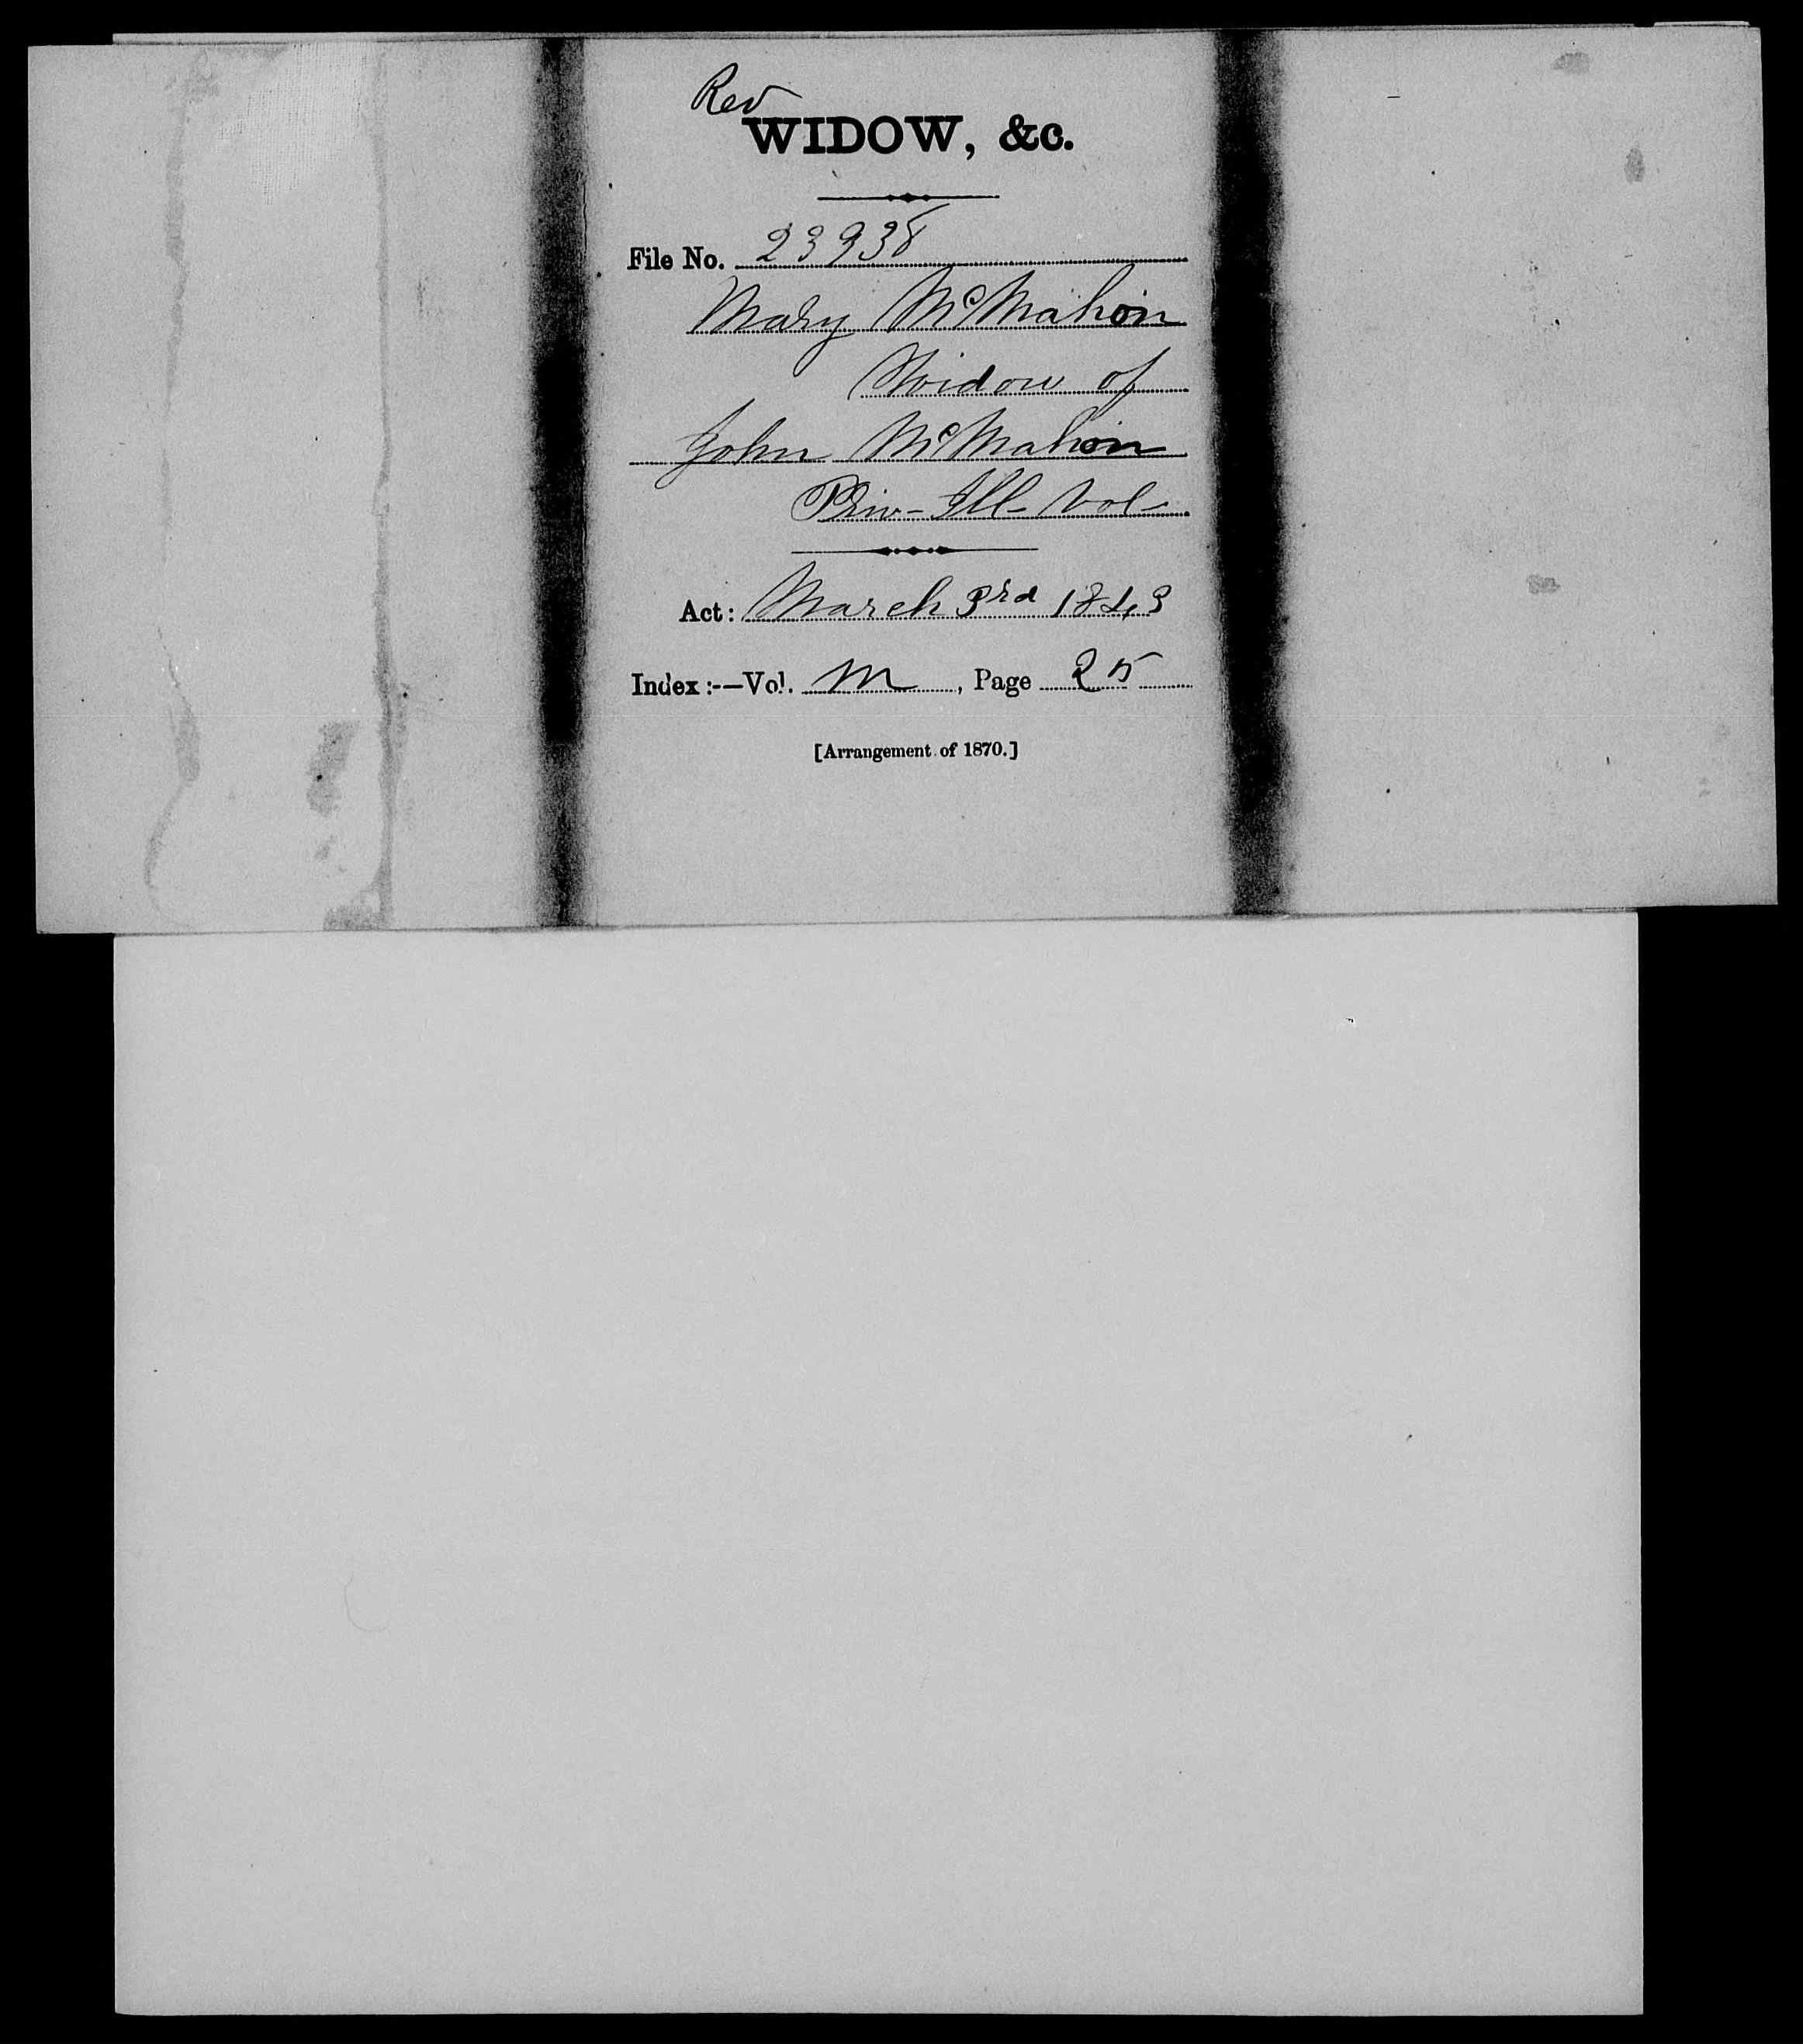 Rev
WIDOW, &c.
File No. 23938
Mary McMahon
Widow of
John McMahon
Priv- Ill- Vol-
Act: March 3rd 1843
Index:—Vol. M, Page 25
[Arrangement of 1870.]